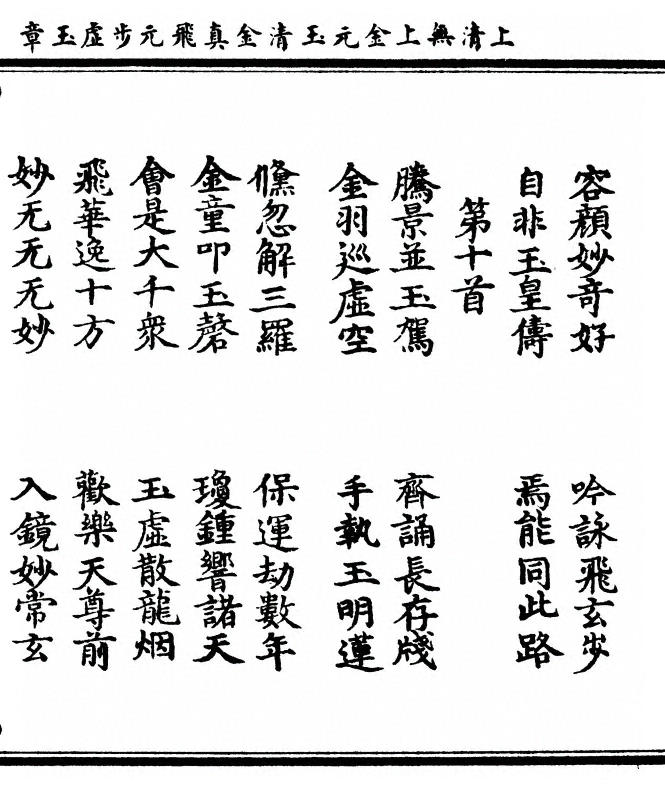 上清無上金元玉清金真飛元步虛玉章
容顏妙奇好　吟詠飛玄步
自非玉皇儔　焉能同此路
第十首
騰景並玉駕　齊誦長存牋
金羽巡虛空　手執玉明蓮
儵忽解三羅　保運劫數年
金童叩玉磬　瓊鍾響諸天
會是大千眾　玉虛散龍烟
飛華逸十方　歡樂天尊前
妙无无无妙　入鏡妙常玄